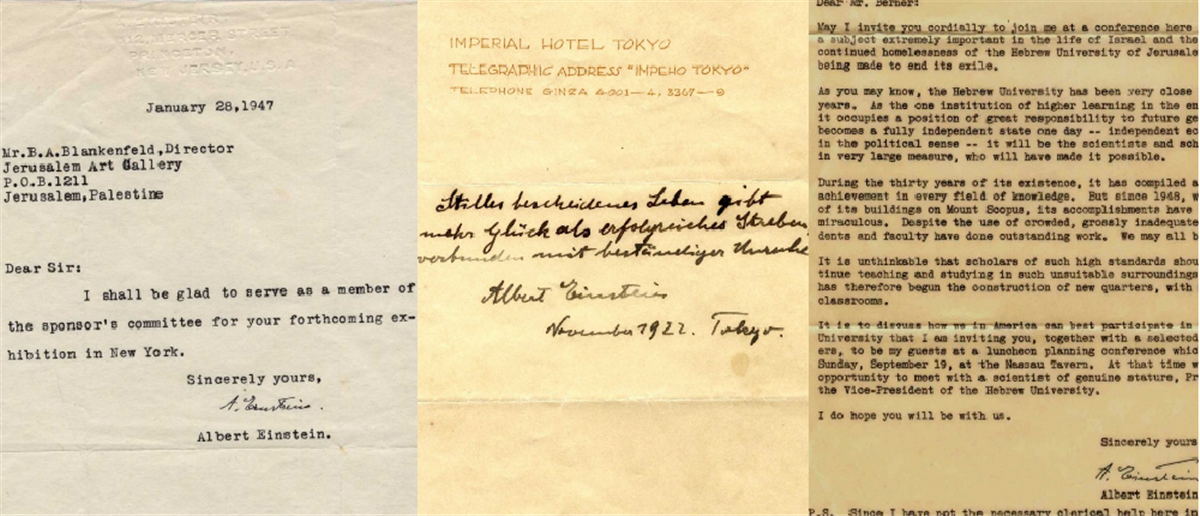 112 MERCER STREET,
PRINCETON,
NEW JERSEY, U.S.A
January 28,1947
Mr.B.A.Blankenfeld,Director
Jerusalem Art Gallery
P.O.B.1211
Jerusalem,Palestine
Dear Sir:
I shall be glad to serve as a member of
the sponsor's committee for your forthcoming ex-
hibition in New York.
Sincerely yours,
A. Einstein.
Albert Einstein.
IMPERIAL HOTEL TOKYO
TELEGRAPHIC ADDRESS "IMPEHO TOKYO"
TELEPHONE GINZA 4001—4, 3367—9
Stilles bescheidenes Leben gibt
mehr Glück als erfolgreiches Streben,
verbunden mit beständiger Unruhe
Albert Einstein
November 1922. Tokyo.
Dear Mr. Berner:
May I invite you cordially to join me at a conference here
a subject extremely important in the life of Israel and the
continued homelessness of the Hebrew University of Jerusale
being made to end its exile.
As you may know, the Hebrew University has been very close
years. As the one institution of higher learning in the en
it occupies a position of great responsibility to future ge
becomes a fully independent state one day -- independent ec
in the political sense -- it will be the scientists and sch
in very large measure, who will have made it possible.
During the thirty years of its existence, it has compiled a
achievement in every field of knowledge. But since 1948, w
of its buildings on Mount Scopus, its accomplishments have
miraculous. Despite the use of crowded, grossly inadequate
dents and faculty have done outstanding work. We may all b
It is unthinkable that scholars of such high standards shou
tinue teaching and studying in such unsuitable surroundings
has therefore begun the construction of new quarters, with
classrooms.
It is to discuss how we in America can best participate in
University that I am inviting you, together with a selected
ers, to be my guests at a luncheon planning conference whic
Sunday, September 19, at the Nassau Tavern. At that time w
opportunity to meet with a scientist of genuine stature, Pr
the Vice-President of the Hebrew University.
I do hope you will be with us.
Sincerely yours
A. Einstein
Albert Einstein
P.S. Since I have not the necessary clerical help here in